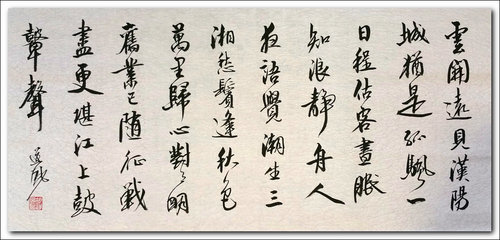 雲開遠見漢陽
城猶是孤颿一
日程估客晝眠
知浪静舟人
夜語覺潮生三
湘愁鬢逢秋色
萬里歸心對月明
舊業已随征戰
盡更堪江上鼓
鼙聲